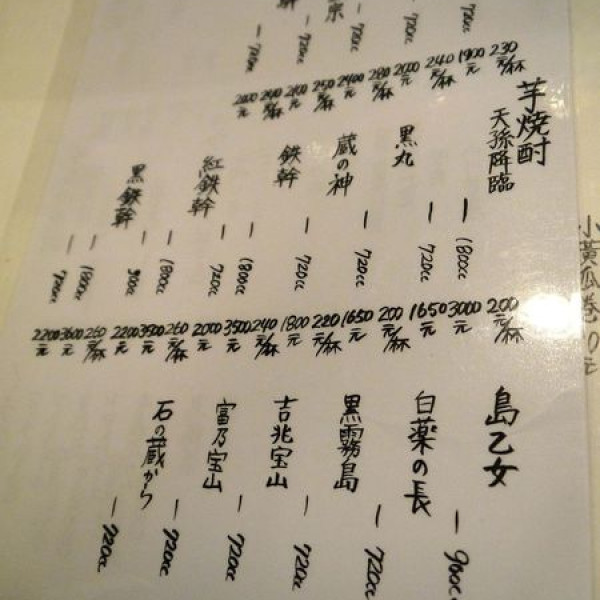 720cc
720cc
720cc
230元/杯
1900元
240元/杯
2000元
280元/杯
2400元
250元/杯
2100元
240元/杯
2000元
芋焼酎
天孫降臨
黒丸
蔵の神
鉄幹
紅鉄幹
黒鉄幹
1800cc
720cc
720cc
720cc
1800cc
720cc
1800cc
900cc
1800cc
720cc
200元/杯
3000元
1650元
200元/杯
1650元
220元/杯
1800元
240元/杯
3500元
2000元
260元/杯
3500元
2200元
260元/杯
3600元
2200元
島乙女
白薬の長
黒霧島
吉兆宝山
富乃宝山
石の蔵から
900cc
720cc
720cc
720cc
720cc
720cc
小黃瓜卷